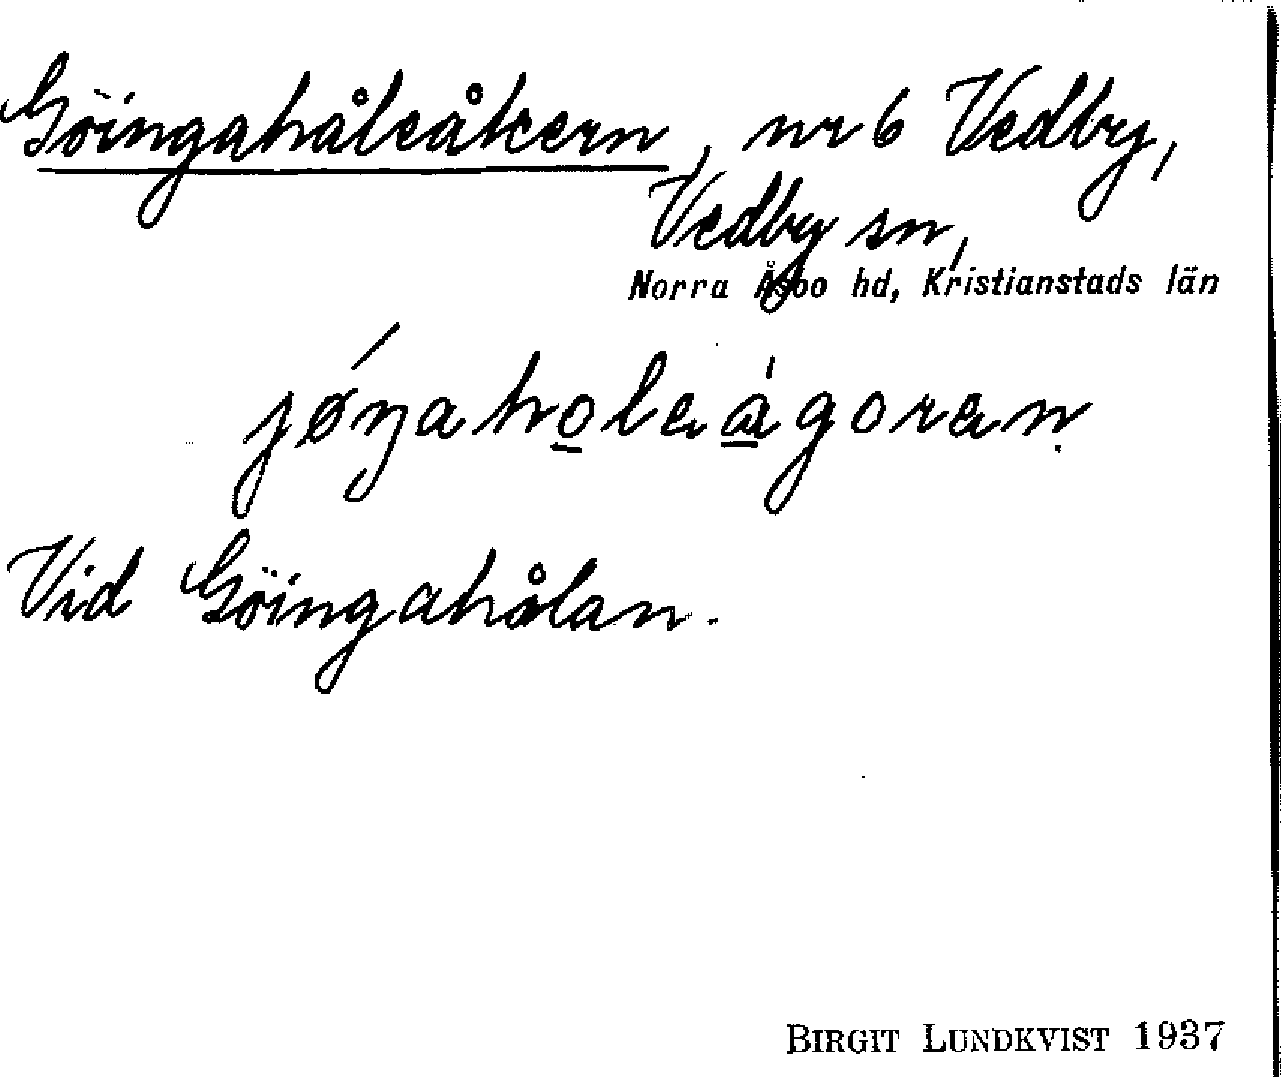 Göingahåleåkern, nr 6 Vedby,
Vedby sn,
Norra Åsbo hd, Kristianstads län
jǿŋaholaágoraṇ
Vid Göingahålan.
BIRGIT LUNDKVIST 1937